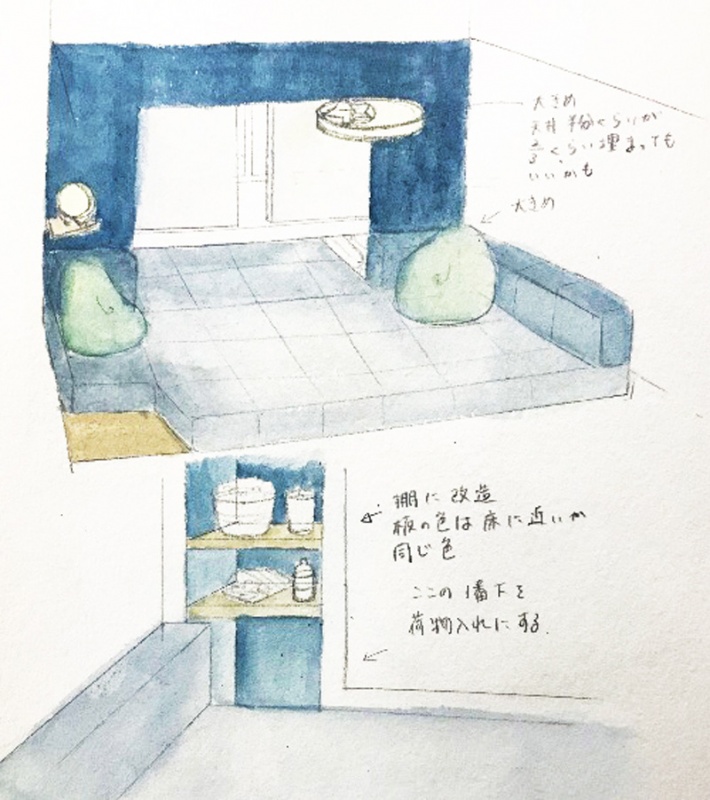 大きめ
天井半分くらいか
2/3くらい埋まっても
いいかも
大きめ
棚に改造
板の色は床に近いか
同じ色
ここの1番下を
荷物入れにする。